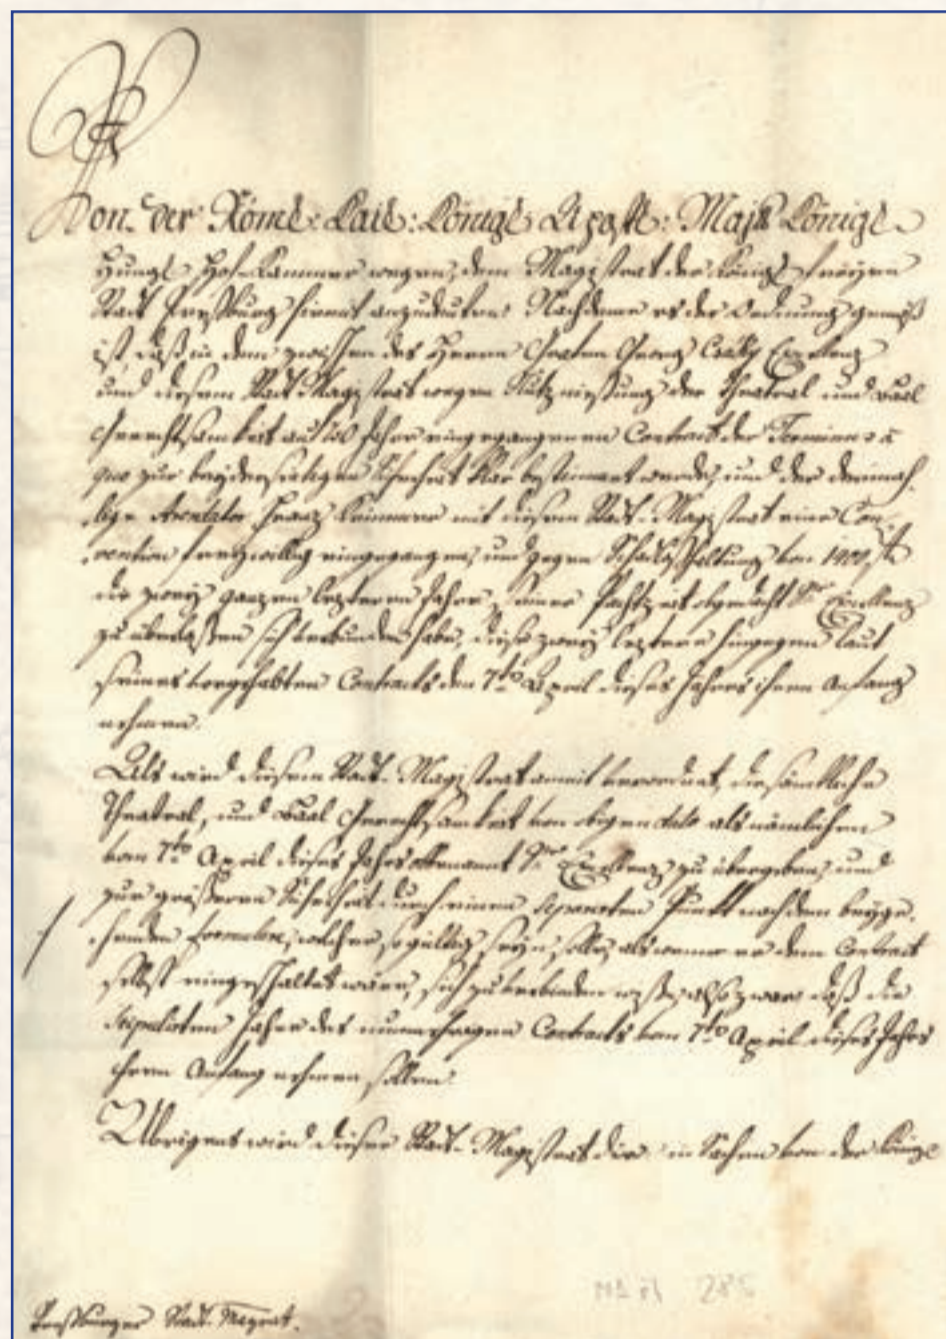 Von der Röml: Kaiß: Königl Apostl: Majtt Königl
Hungl Hof-Kammer wegen, dem Magistrat der Königl freÿen
Stadt Preßburg hiemit anzudeuten: Nachdeme es der Ordnung gemäß
ist, daß in dem zwischen des Herrn Grafen Georg Csáky Excellenz
und diesem Stadt-Magistrat wegen Nutzniessung der Theatral und Baal
Gerechtsamkeit auf Jahr eingegangenen Contract der Terminus à
quo zur beyderseitigen Sicherheit klar bestimmt werde, und der dermah-
lige Arendator Franz mit diesem Stadt-Magistrat eine Con-
vention freywillig eingegangen, und gegen Schadloßhaltung von 1400 f
die zweÿ ganzen lezteren Jahre seiner Pachtzeit obgedacht Sr Excellenz
zu überlaßen sich verbunden habe, diese zweÿ leztern hingegen laut
seines vorgehabten Contracts den 7to April dieses Jahrs ihren Anfang
nehmen.
Als wird diesem Stadt-Magistrat anmit verordnet, die sämtliche
Theatral, und Baal Gerechtsamkeit von obigen dato als nämlichen
vom 7to April dieses Jahrs obbenannt Sr Excellenz zu übergeben, und
zur größeren Sicherheit durch einen separaten Punkt nach dem beyge-
henden Formulare, welcher so gültig seyn solle, als wenn er dem Contract
selbst eingeschaltet wäre, sich zu verbinden also zwar daß die
stipulirten Jahre des Contracts vom 7to April dieses Jahrs
ihren Anfang nehmen sollen.
Übrigens wird dieser Stadt-Magistrat die in Sachen von der Königl
Preßburger Stadt-Magrat.